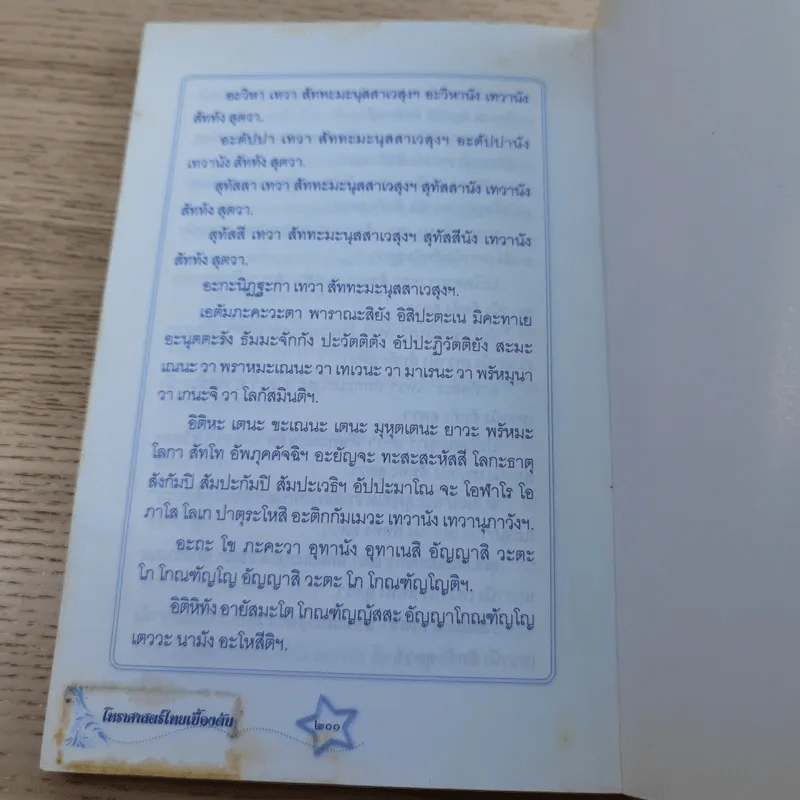 อะวิหา เทวา สัททะมะนุสสาเวสุงฯ อะวิหานัง เทวานัง
สัททัง สุตวา.
อะตัปปา เทวา สัททะมะนุสสาเวสุงฯ อะตัปปานัง
เทวานัง สัททัง สุตวา.
สุทัสสา เทวา สัททะมะนุสสาเวสุงฯ สุทัสสานัง เทวานัง
สัททัง สุตวา.
สุทัสสี เทวา สัททะมะนุสสาเวสุงฯ สุทัสสีนัง เทวานัง
สัททัง สุตวา.
อะกะนิฏฐะกา เทวา สัททะมะนุสสาเวสุงฯ.
เอตัมภะคะวะตา พาราณะสิยัง อิสิปะตะเน มิคะทาเย
อะนุตตะรัง ธัมมะจักกัง ปะวัตติตัง อัปปะฏิวัตติยัง สะมะ
เณนะ วา พราหมะเณนะ วา เทเวนะ วา มาเรนะ วา พรัหมุนา
วา เกนะจิ วา โลกัสมินติฯ.
อิติหะ เตนะ ขะเณนะ เตนะ มุหุตเตนะ ยาวะ พรัหมะ
โลกา สัทโท อัพภุคคัจฉิฯ อะยัญจะ ทะสะสะหัสสี โลกะธาตุ
สังกัมปิ สัมปะกัมปิ สัมปะเวธิฯ อัปปะมาโณ จะ โอฬาโร โอ
ภาโส โลเก ปาตุระโหสิ อะติกกัมเมวะ เทวานัง เทวานุภาวังฯ.
อะถะ โข ภะคะวา อุทานัง อุทาเนสิ อัญญาสิ วะตะ
โภ โกณฑัญโญ อัญญาสิ วะตะ โภ โกณฑัญโญติฯ.
อิติหิทัง อายัสมะโต โกณฑัญญัสสะ อัญญาโกณฑัญโญ
เตววะ นามัง อะโหสีติฯ.
โหราศาสตร์ไทยเบื้องต้น
๒๐๐